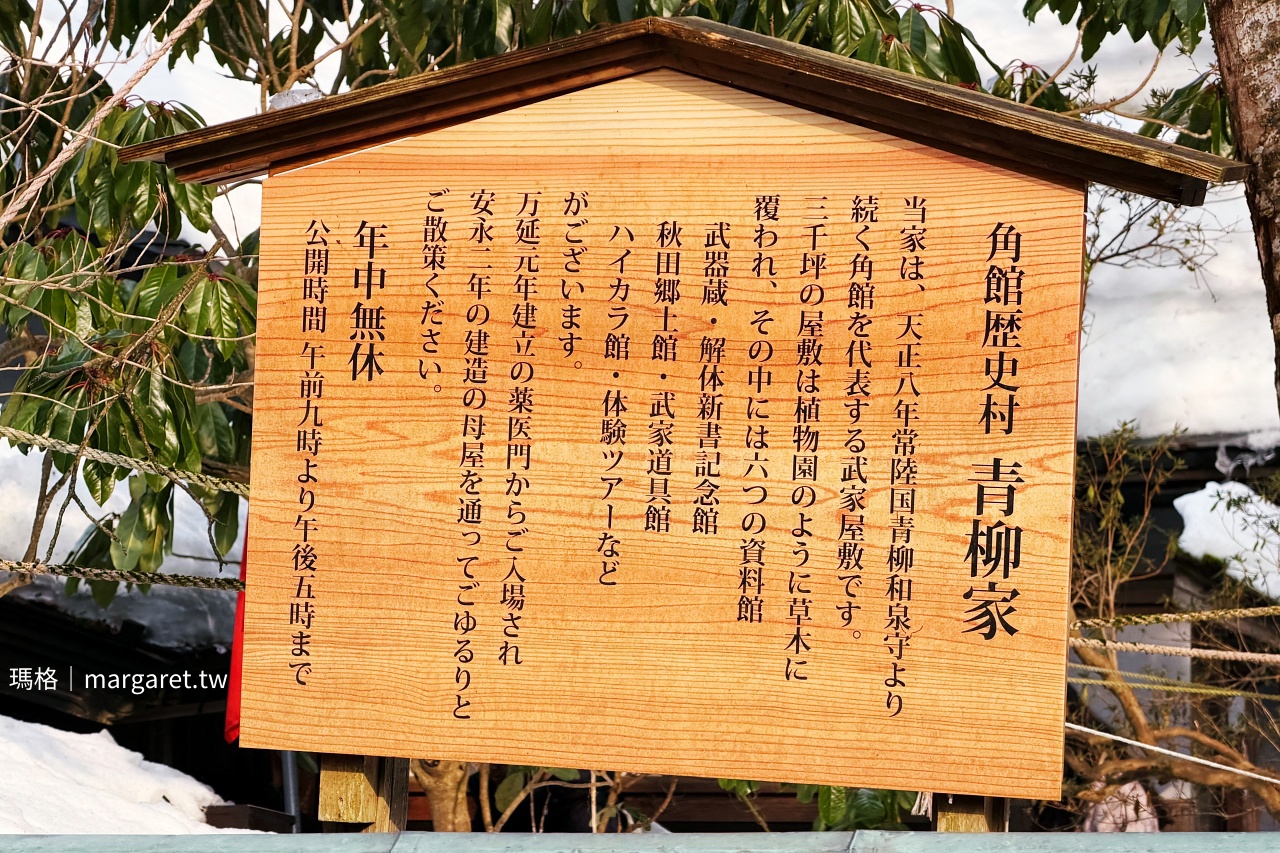 角館歴史村 青柳家
当家は、天正八年常陸国青柳和泉守より
続く角館を代表する武家屋敷です。
三千坪の屋敷は植物園のように草木に
覆われ、その中には六つの資料館
武器蔵・解体新書記念館
秋田郷土館・武家道具館
ハイカラ館・体験ツアーなど
がございます。
万延元年建立の薬医門からご入場され
安永二年の建造の母屋を通ってごゆるりと
ご散策ください。
年中無休
公開時間 午前九時より午後五時まで
瑪格｜margaret.tw